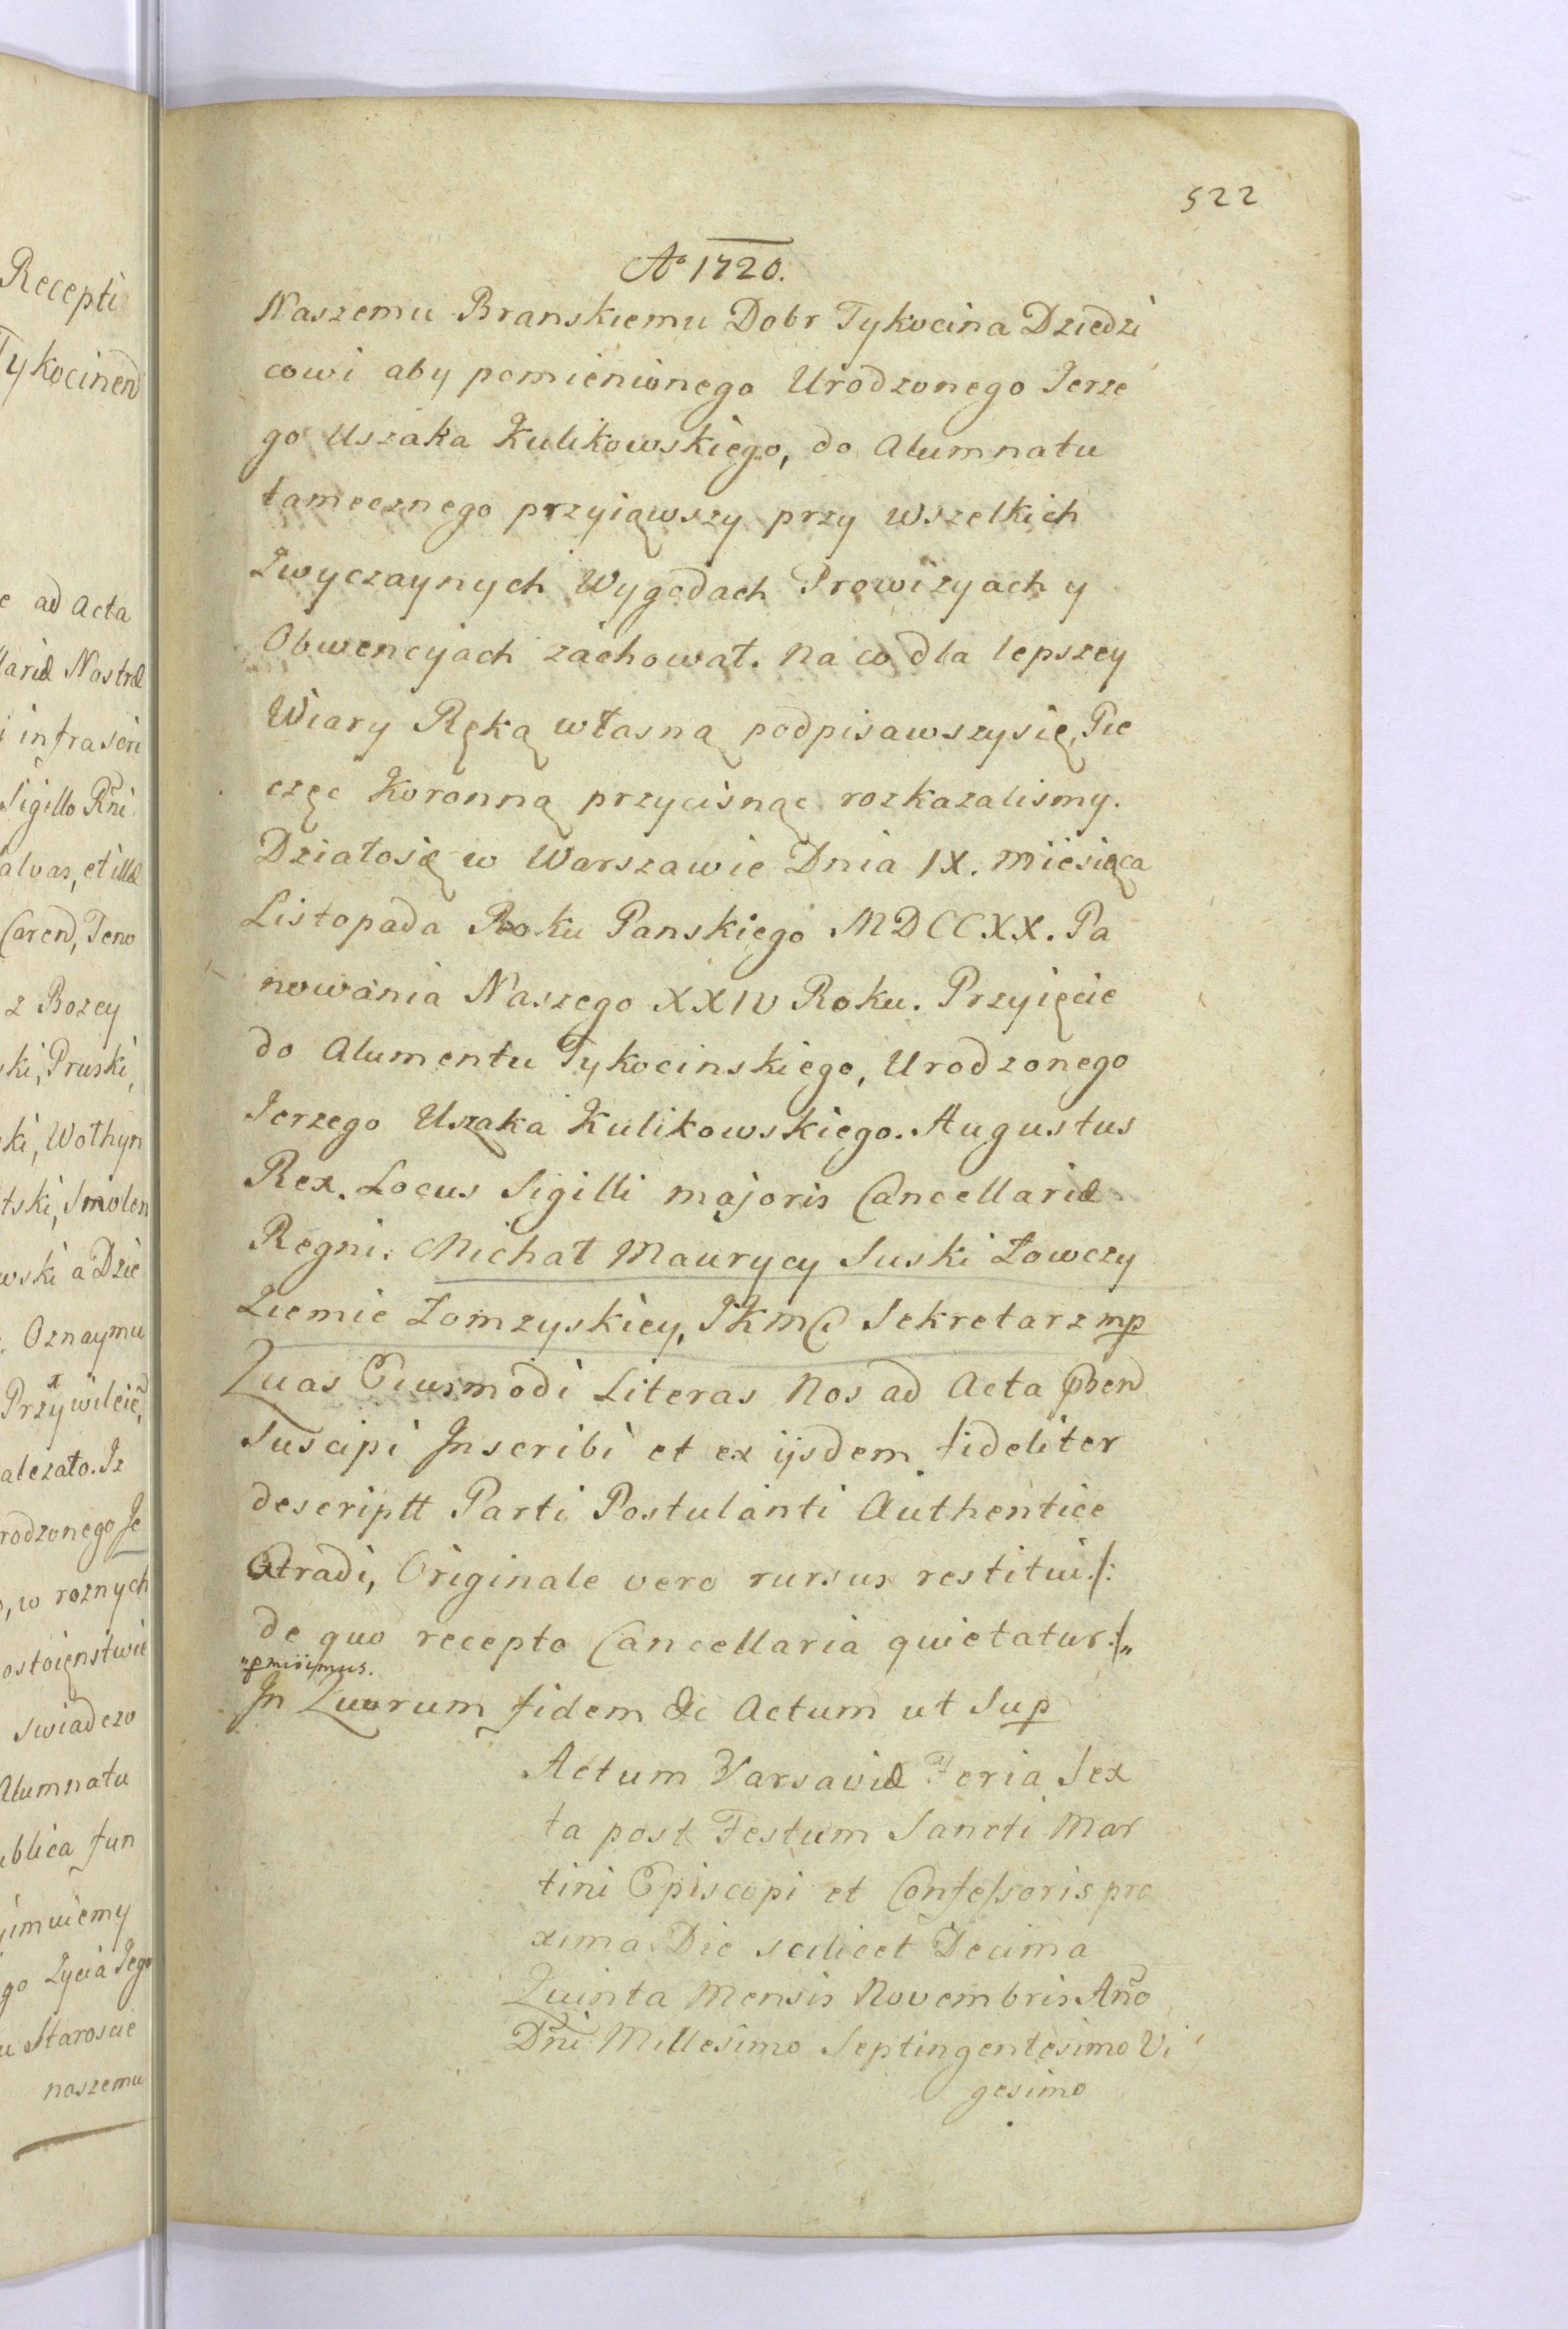 Recepti
Tykocinen
ad Acta
Nostræ
infrascri
Sigillo Rni
alvas, et illæ
z Bozey
ki, Pruski,
ki, Wołhyn
Smolen
wski a Dzie
Oznaymu
Przywileie
alezało. Iz
rodzonego Je
w roznych
ostoięnstwie
swiadczo
Alumnatu
ublica fun
imuiemy
go Zycia Jego
u Staroscie
naszemu
522
Ao 1720.
Naszemu Branskiemu Dobr Tykocina Dziedzi
cowi aby pomienionego Urodzonego Jerze
go Uszaka Kulikowskiego, do Alumnatu
tamecznego przyiąwszy przy wszelkich
Zwyczaynych Wygodach Prowizyach y
Obwencyiach zachował. Na co dla lepszey
Wiary Ręką własną podpisawszysię, Pie
częc Koronną przycisnąc rozkazalismy.
Działosię w Warszawie Dnia IX. Miesiąca
Listopada Roku Panskiego MDCCXX. Pa
nowania Naszego XXIV Roku. Przyięcie
do Alumentu Tykocinskiego, Urodzonego
Jerzego Uszaka Kulikowskiego. Augustus
Rex. Locus Sigilli majoris Cancellariæ
Regni. Michał Maurycy Suski Łowczy
Ziemie Łomzyskiey, JKMCi Sekretarz mp
Quas Eiusmodi Literas Nos ad Acta pbend
Suscipi Inscribi et ex ijsdem fideliter
descriptt Parti Postulanti Authentice
Extradi, Originale vero rursus restitui /:
de quo recepto Cancellaria quietatur :/„
„pmisimus.
In Quorum fidem &c Actum ut Sup
Actum Varsaviæ Feria Sex
ta post Festum Sancti Mar
tini Episcopi et Confessoris pro
xima Die scilicet Decima
Quinta Mensis Novembris Ano
Dni Millesimo Septingentesimo Vi
gesimo